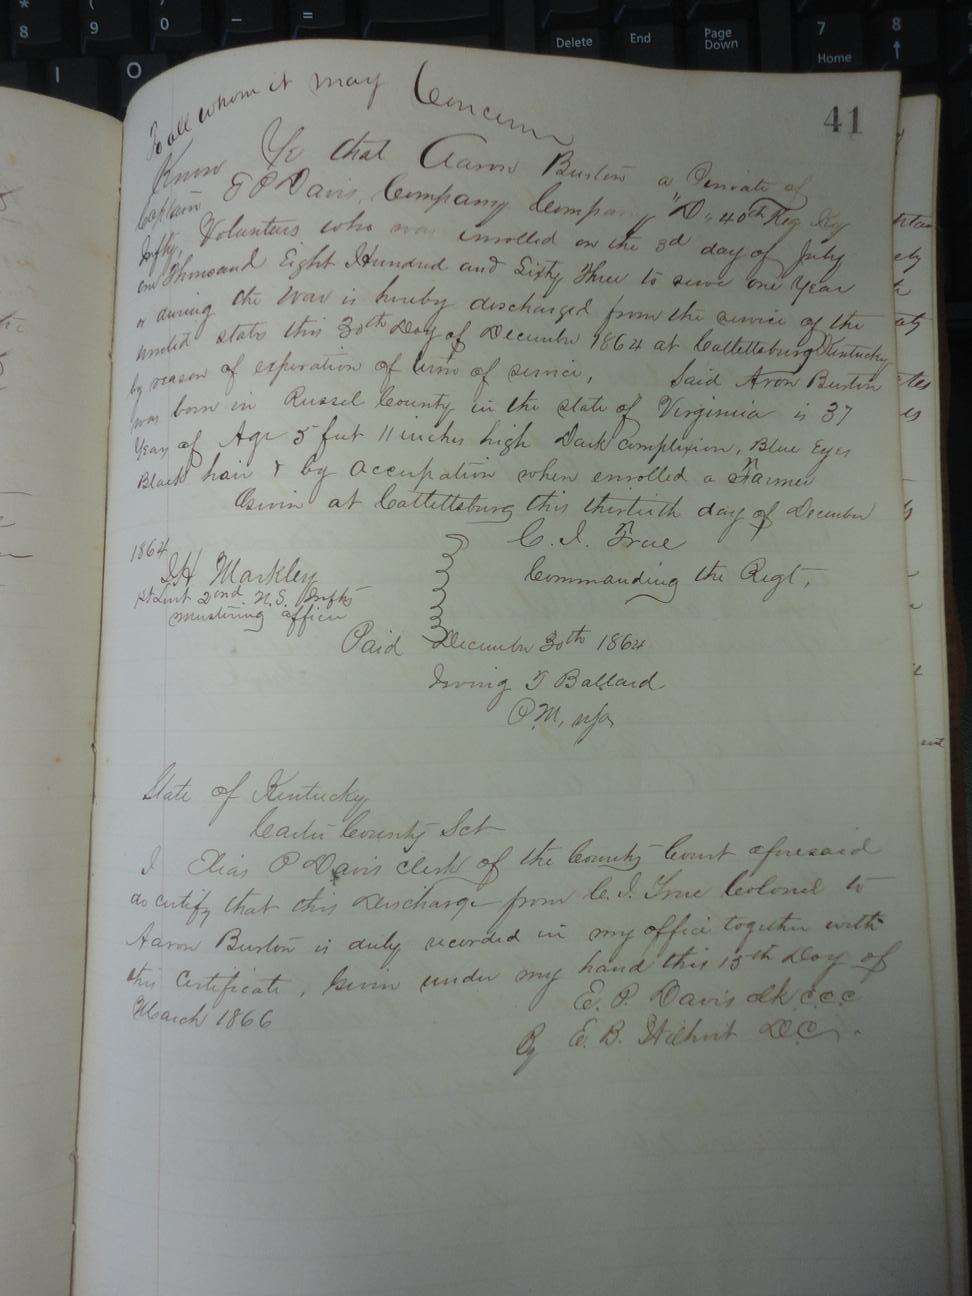 *
8
(
9
)
0
–
=
I
O
Delete
End
Page
Down
7
Home
8
41
To all whom it may Concern
Know Ye that Aaron Burton a Private of
Captain T P Davis, Company Company "D" 40th Reg Ky
Infty, Volunteers who was enrolled on the 3d day of July
one Thousand Eight Hundred and Sixty Three to serve one Year
or during the War is hereby discharged from the service of the
united states this 30th Day of December 1864 at Cattettsburg Kentucky
by reason of expiration of term of service, Said Aron Burton
was born in Russel County in the state of Virginia is 37
Year of Age 5 feet 11 inches high Dark complexion, Blue Eyes
Black hair & by Accupation when enrolled a Farmer
Given at Cattettsburg this thirtieth day of December
1864
C. J. True
J.H. Markley
Commanding the Regt,
1st Lieut 2nd N.S. Infty
mustering officer
Paid December 30th 1864
Irving T Ballard
P.M. u/a
State of Kentucky
Carter County Sct
I Elias P Davis clerk of the County Court aforesaid
do certify that this Discharge from C. J. True Colonel to
Aaron Burton is duly recorded in my office together with
this Certificate, Given under my hand this 15th Day of
March 1866
E. P. Davis clk C.C.C
By E. B. Wilhoit D.C.